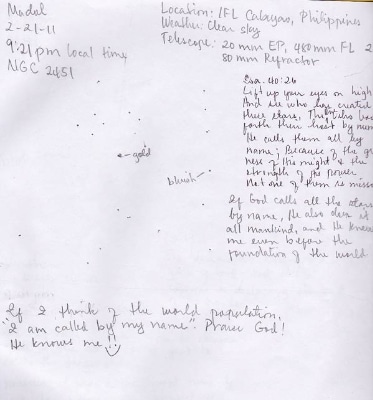 Madal
2-21-11
9:21 pm local time
NGC 2451
Location: IFL Calayao, Philippines
Weather: Clear sky
Telescope: 20 mm EP, 480 mm FL 2
80 mm Refractor
Isa. 40:26
Lift up your eyes on high
And see who has created
these stars, The One who
forth their host by
He calls them all by
name; Because of the
ness of His might & the
strength of His power
Not one of them is
gold
bluish
If God calls all the stars
by name, He also does it
all mankind, and He knows
me even before the
foundation of the world
If I think of the world population,
"I am called by my name". Praise God!
He knows me!!